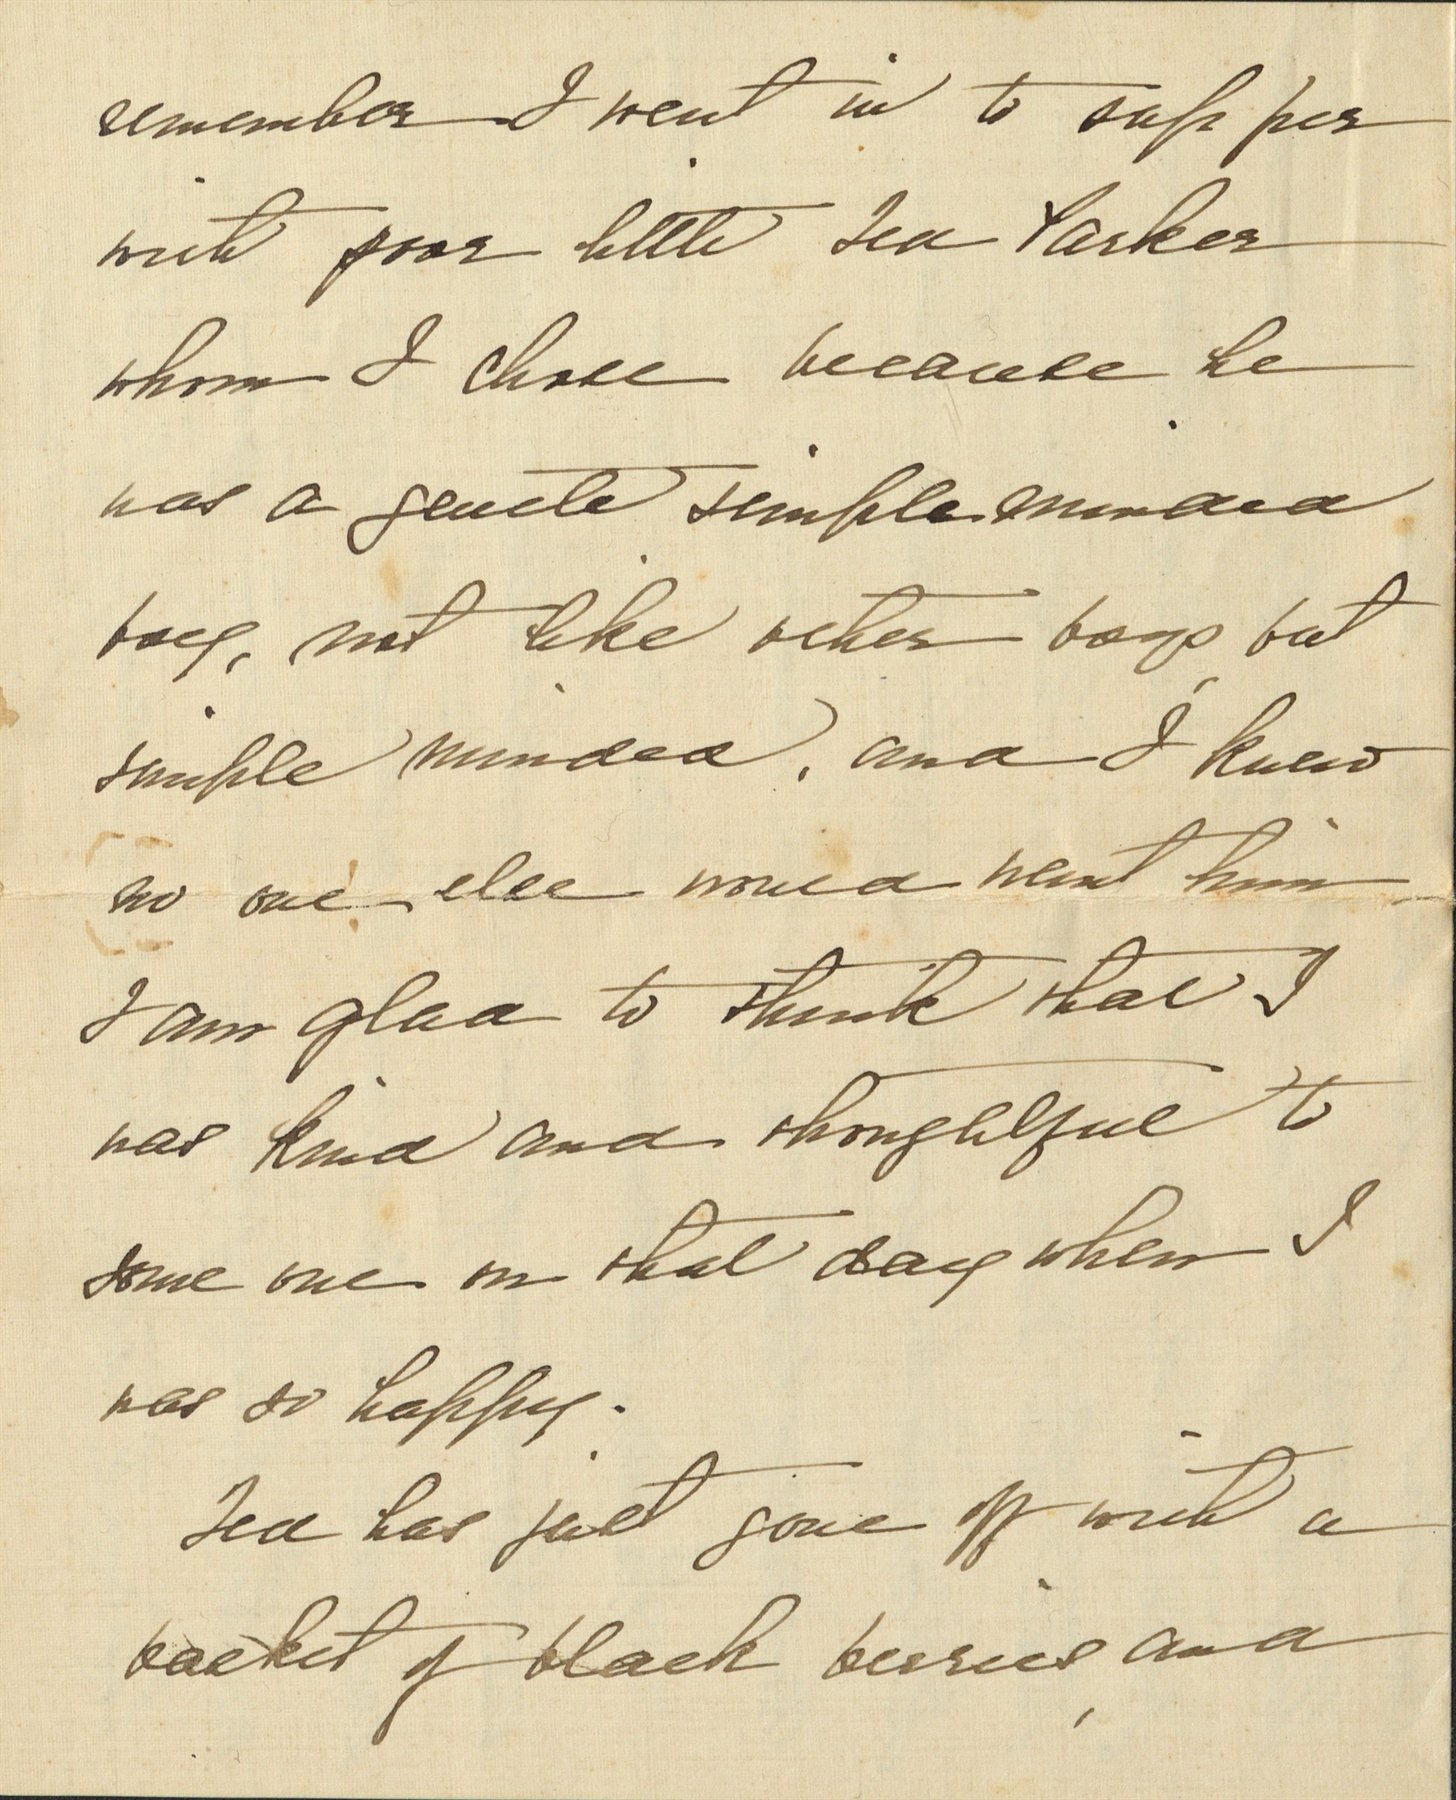 remember I went in to supper
with poor little Ted Parker
whom I chose because he
was a gentle simple minded
boy, not like other boys, but
simple minded, and I knew
no one else would want him
I am glad to think that I
was kind and thoughtful to
some one on that day when I
was so happy.
Ted has just gone off with a
basket of black berries, and